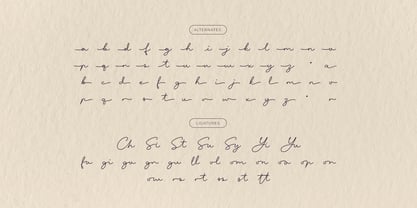 ALTERNATES
a b d f g h i j k l m n o
p q r s t u v w x y z · a
b c d e f g h i j k l m n o
p q r s t u v w x y z · n
LIGATURES
Ch Si St Su Sy Yi Yu
fu gi gu gn gu ll ol om on oa op on
ow rs rt ss st tt